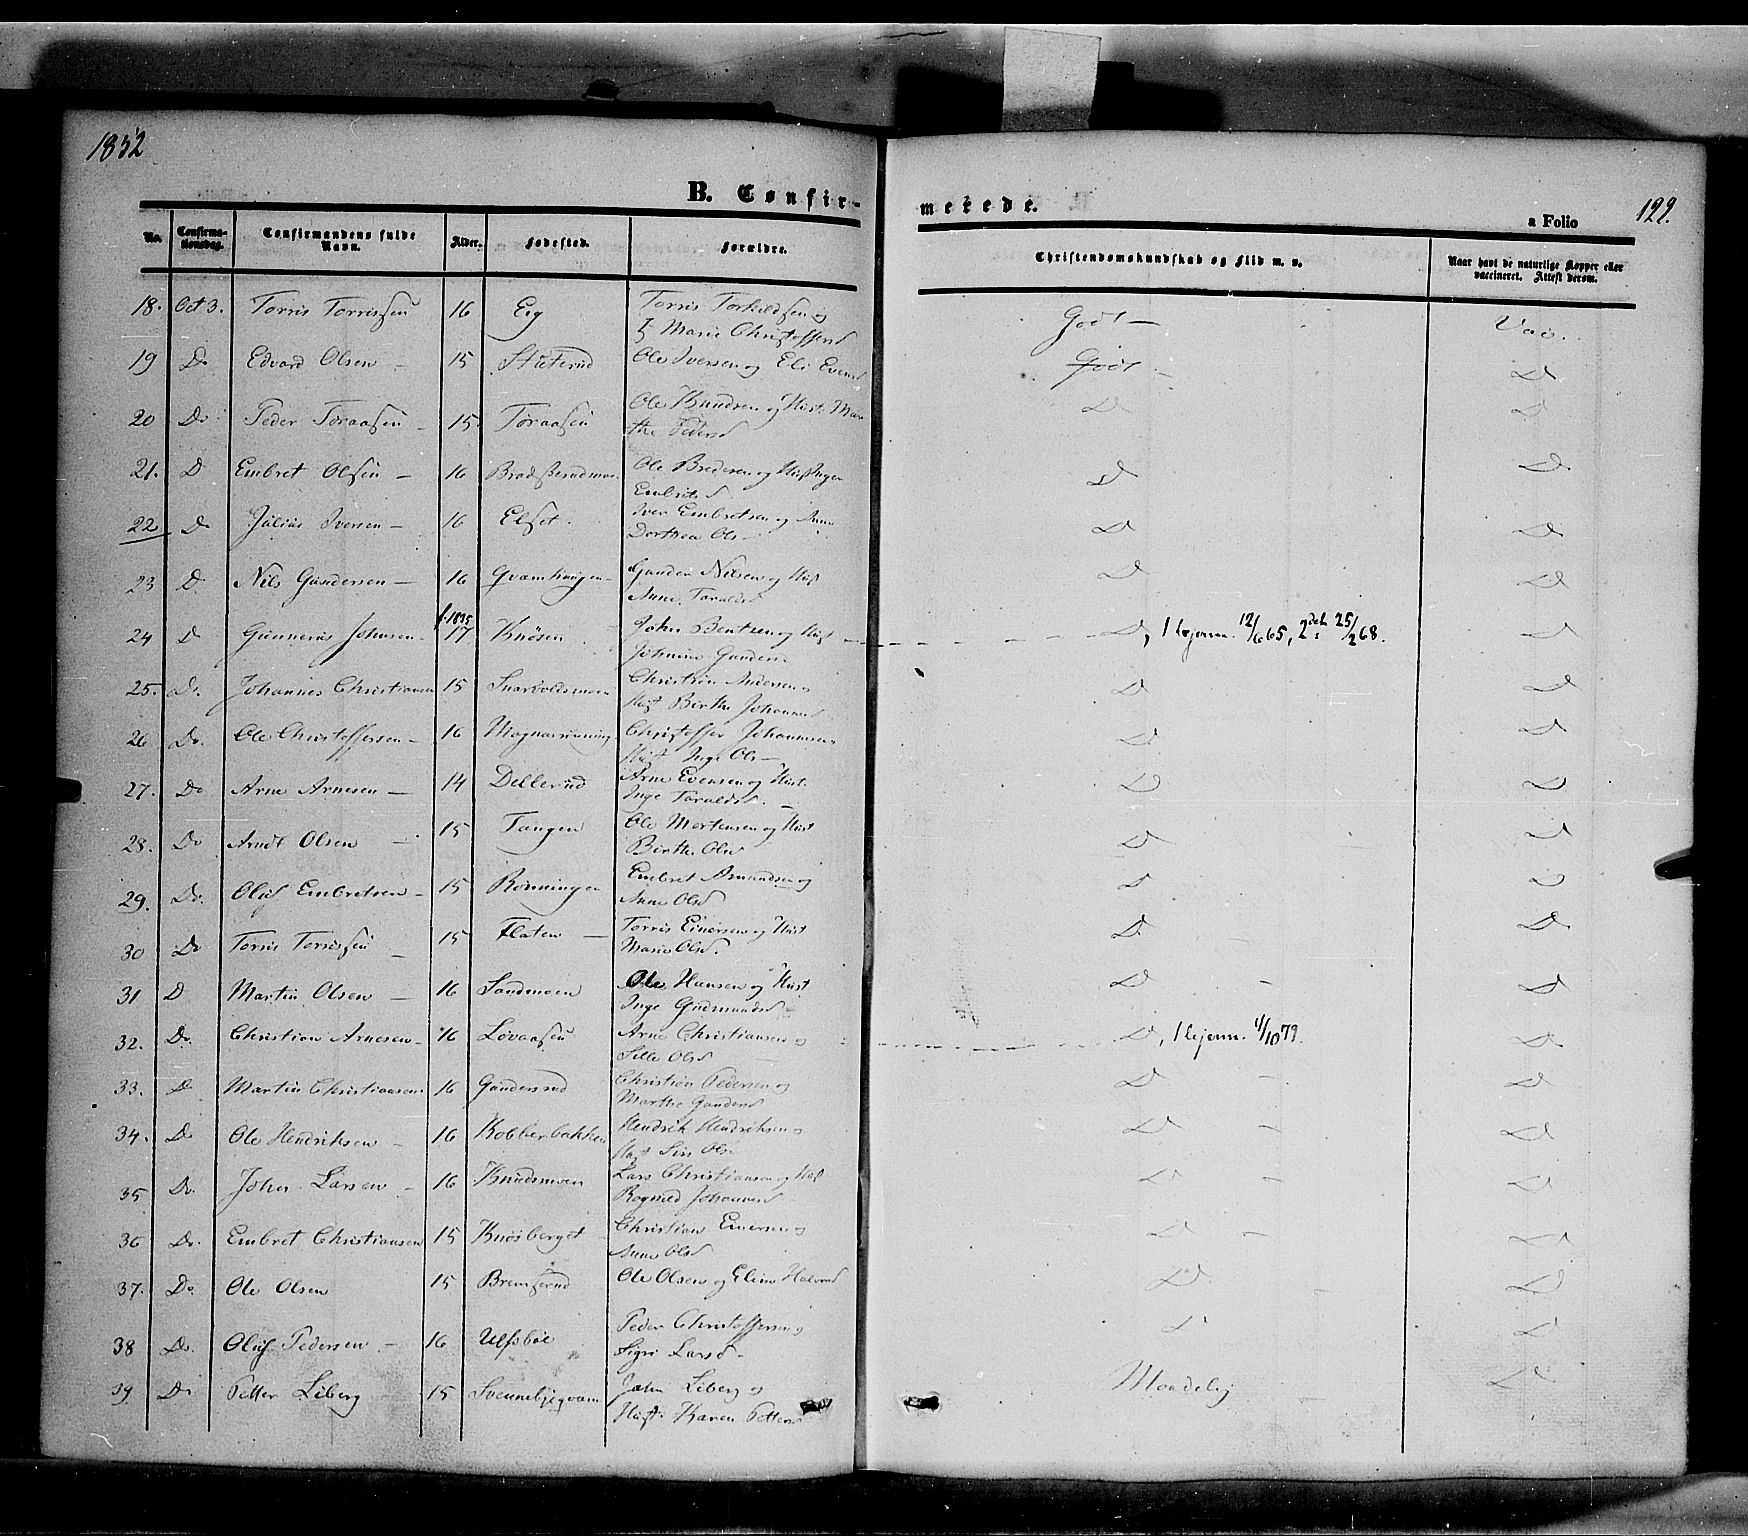 1852
B. Confir-
merede.
a Folio 122.
No.
Confirma-
tionsdag.
Confirmandens fulde
Navn.
Alder.
Fødested.
Forældre.
Christendomskundskab og Flid m. v.
Naar havt de naturlige Kopper eller
vaccineret. Attest derom.
18. Oct 3. Torris Torrissen 16 Eeg Torris Torkildsen og Godt — Vac.
H Marie Christoffersd
19 Do Edvard Olsen — 15 Stuterud Ole Iversen og Eli Evensd Godt — D
20 Do Peder Toraasen — 15 Toraasen Ole Knudsen og Hust. Mar D D
the Pedersd
21. D Embret Olsen — 16 Ole Bredesen og Hust Inger D D
Embretsd
22 D Julius Iversen — 16 Elset. Iver Embretsen og Anne D D
Dorthea Ols —
23 D Nils Gundersen — 16 Gunder Nilsen og Hust D D
Anne Taralds
24 D Gunnerius Johnsen — f. 1835 17 Knøsen John Bentsen og Hust D, Hjem. 12/6 65, 2 25/2 68. D
Johnine Gunders
25. Do. Johannes Christiansen 15 Snarvoldsmoen Christian Andersen og D D
Hust Birthe Johannesd
26 Do. Ole Christoffersen — 16 Christoffer Johannesen D D
Hust Inge Ols —
27. Do Arne Arnesen — 14 Dellerud Arne Evensen og Hust. D D
Inge Taralds. —
28. Do Arndt Olsen — 15 Tangen Ole Mortensen og Hust D D
Birthe Olsd
29. Do. Oluf Embretsen — 15 Rønningen Embret Amundsen og D D
Anne Olsd
30 Do Torris Torrissen — 15 Flaten — Torris Einersen og Hust D D
Marie Olsd.
31 D Martin Olsen — 16 Sandmoen Ole Hansen og Hust D — D
Inge Gudmundsd
32. Do. Christian Arnesen — 16 Løvaasen Arne Christiansen og D, Hjem. 4/10 79. D
Sille Olsd
33. D Martin Christiansen 16 Gundersrud Christian Pedersen og D — D
Marthe Gundersd
34. Do Ole Hendriksen — 16 Kobberbakken Hendrik Hendriksen og D — D
Hust Siri Ols
35 Do. John Larsen — 16 Knudsmoen Lars Christiansen og Hust D — D
Ragnild Johannesd
36 Do. Embret Christiansen 15 Knøsberget Christian Einersen og D — D
Anne Olsd
37. Do. Ole Olsen 15 Bremserud Ole Olsen og Eline Halvorsd D D
38 Do. Oluf Pedersen — 16 Ulfsbøl Peder Christoffersen og D D
Sigri Larsd —
39. Do Petter Liberg 15 John Liberg og Maadelig D
Hust Karen Petters